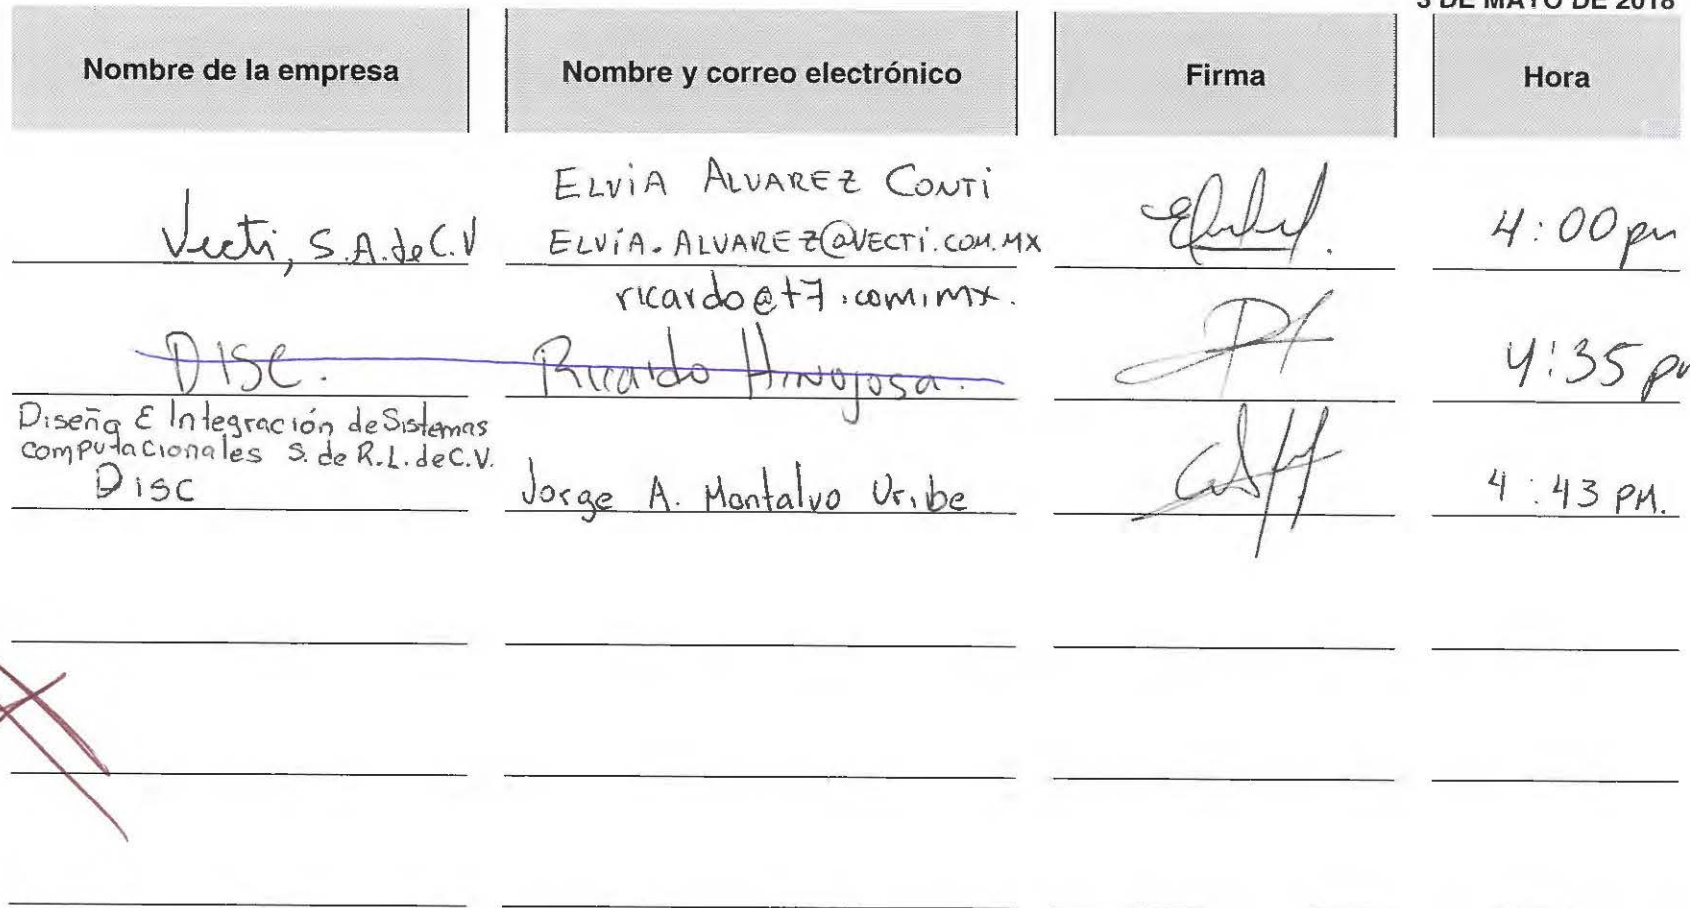 3 DE MAYO DE 2018
Nombre de la empresa Nombre y correo electrónico Firma Hora
ELViA ALVAREZ CONTi
Vecti, S.A. de C.V ELVíA.ALVAREZ@VECTi.COM.MX 4:00 pm
ricardo@t7.com.mx.
DISC. Ricardo Hinojosa. 4:35 pm
Diseño E Integración de Sistemas
computacionales S. de R.L. de C.V.
Disc Jorge A. Montalvo Uribe 4:43 PM.